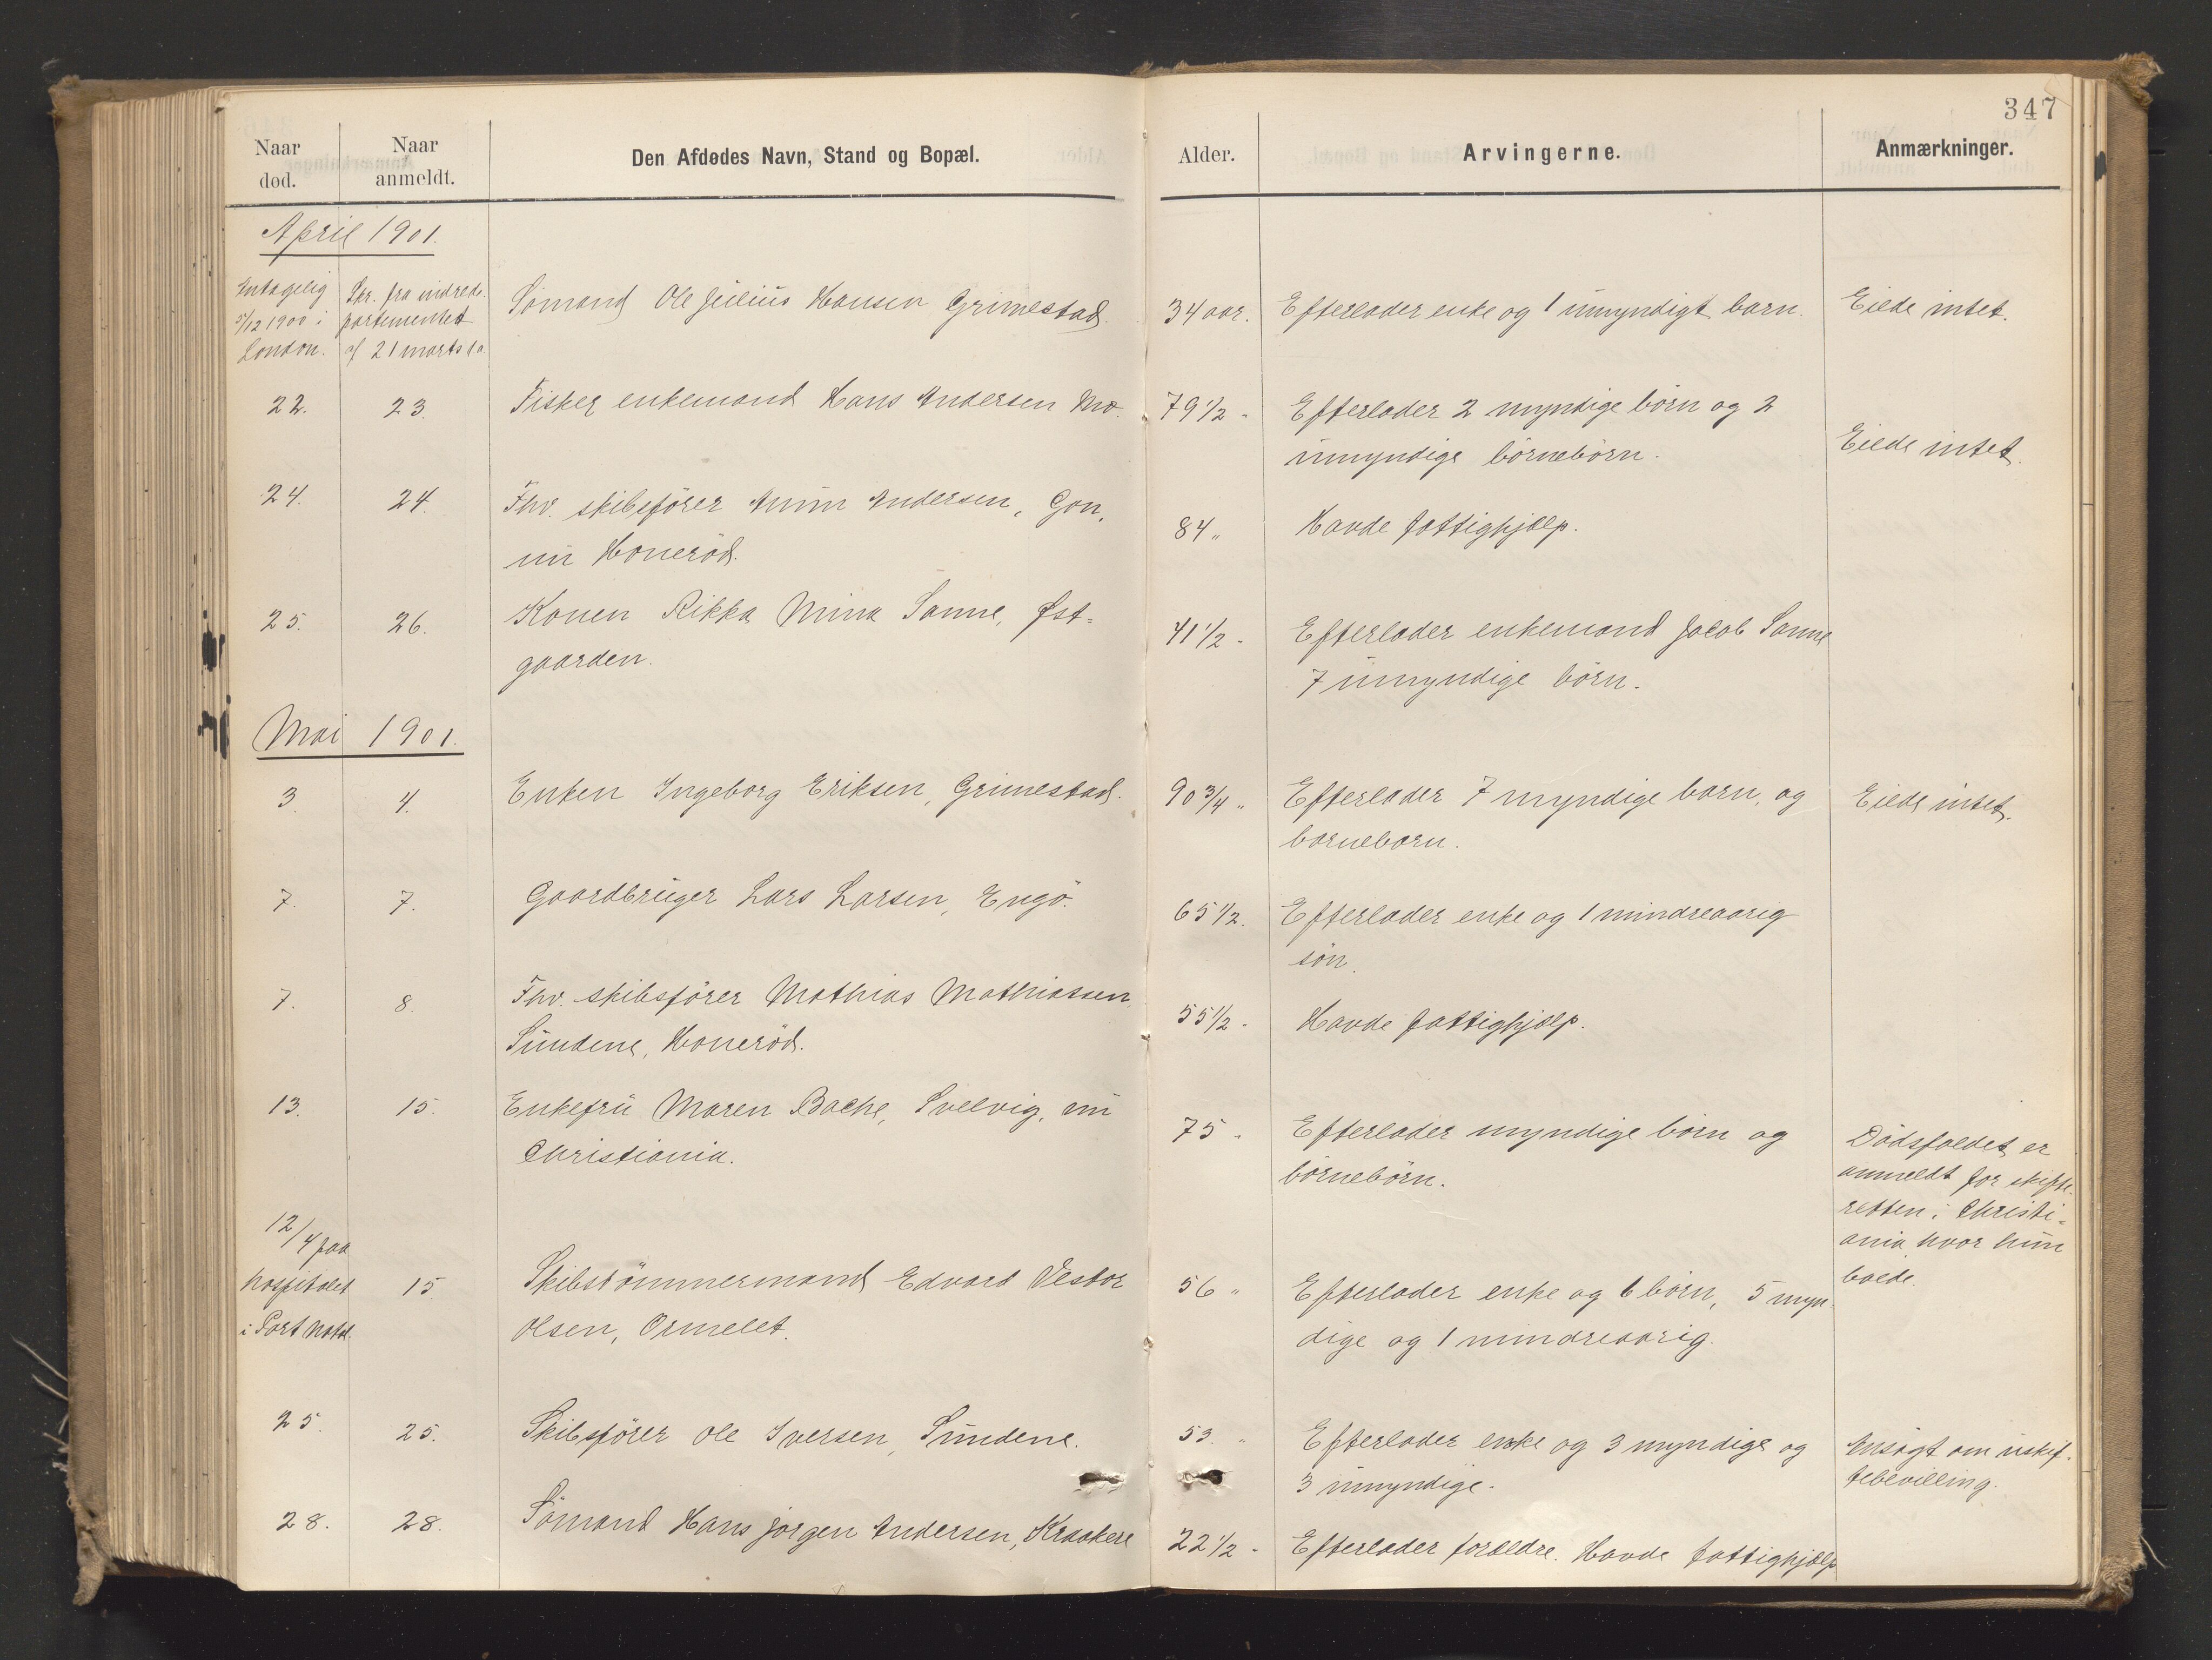 347
Naar død.
Naar anmeldt.
Den Afdødes Navn, Stand og Bopæl.
Alder.
Arvingerne.
Anmærkninger.
April 1901.
Antagelig
Skr. fra indrede-
/12 1900 i
partementet
London.
af 21 marts d.a.
Sømand Ole Julius Hansen Grimestad.
34 aar.
Efterlader enke og 1 umyndigt barn.
Eiede intet.
22.
23.
Fisker enkemand Hans Andersen Mo.
79 1/2 "
Efterlader 2 myndige börn og 2
umyndige börnebörn.
Eiede intet.
24.
24.
Fhv. skibsförer Anun Andersen, Gon,
nu Honeröd.
84 "
Havde fattighjælp.
25.
26.
Konen Rikka Mina Sanne, Øst-
gaarden.
41 1/2 "
Efterlader enkemand Jacob Sanne
7 umyndige börn.
Mai 1901.
3.
4.
Enken Ingeborg Eriksen, Grimestad.
90 3/4 "
Efterlader 7 myndige barn, og
barnebarn.
Eiede intet.
7.
7.
Gaardbruger Lars Larsen, Engö.
65 1/2.
Efterlader enke og 1 mindreaarig
sön.
7.
8.
Fhv. skibsförer Mathias Mathiassen,
Sundene, Honeröd.
55 1/2 "
Havde fattighjælp.
13.
15.
Enkefru Maren Bache, Svelvig, nu
Christiania.
75 "
Efterlader myndige börn og
börnebörn.
Dödsfaldet er
anmeldt for skifte-
retten i Christi-
ania hvor hun
boede.
12/4 paa
hospitalet
i Port Natal.
15
Skibstömmermand Edvard Vestor
Olsen, Ormelet.
56 "
Efterlader enke og 6 börn, 5 myn-
dige og 1 mindreaarig.
25.
25.
Skibsförer Ole Iversen, Sundene.
53. "
Efterlader enke og 3 myndige og
3 umyndige.
Ansögt om uskif-
tebevilling.
28.
28.
Sömand Hans Jörgen Andersen, Kraakere
22 1/2 "
Efterlader forældre. Havde fattighjælp